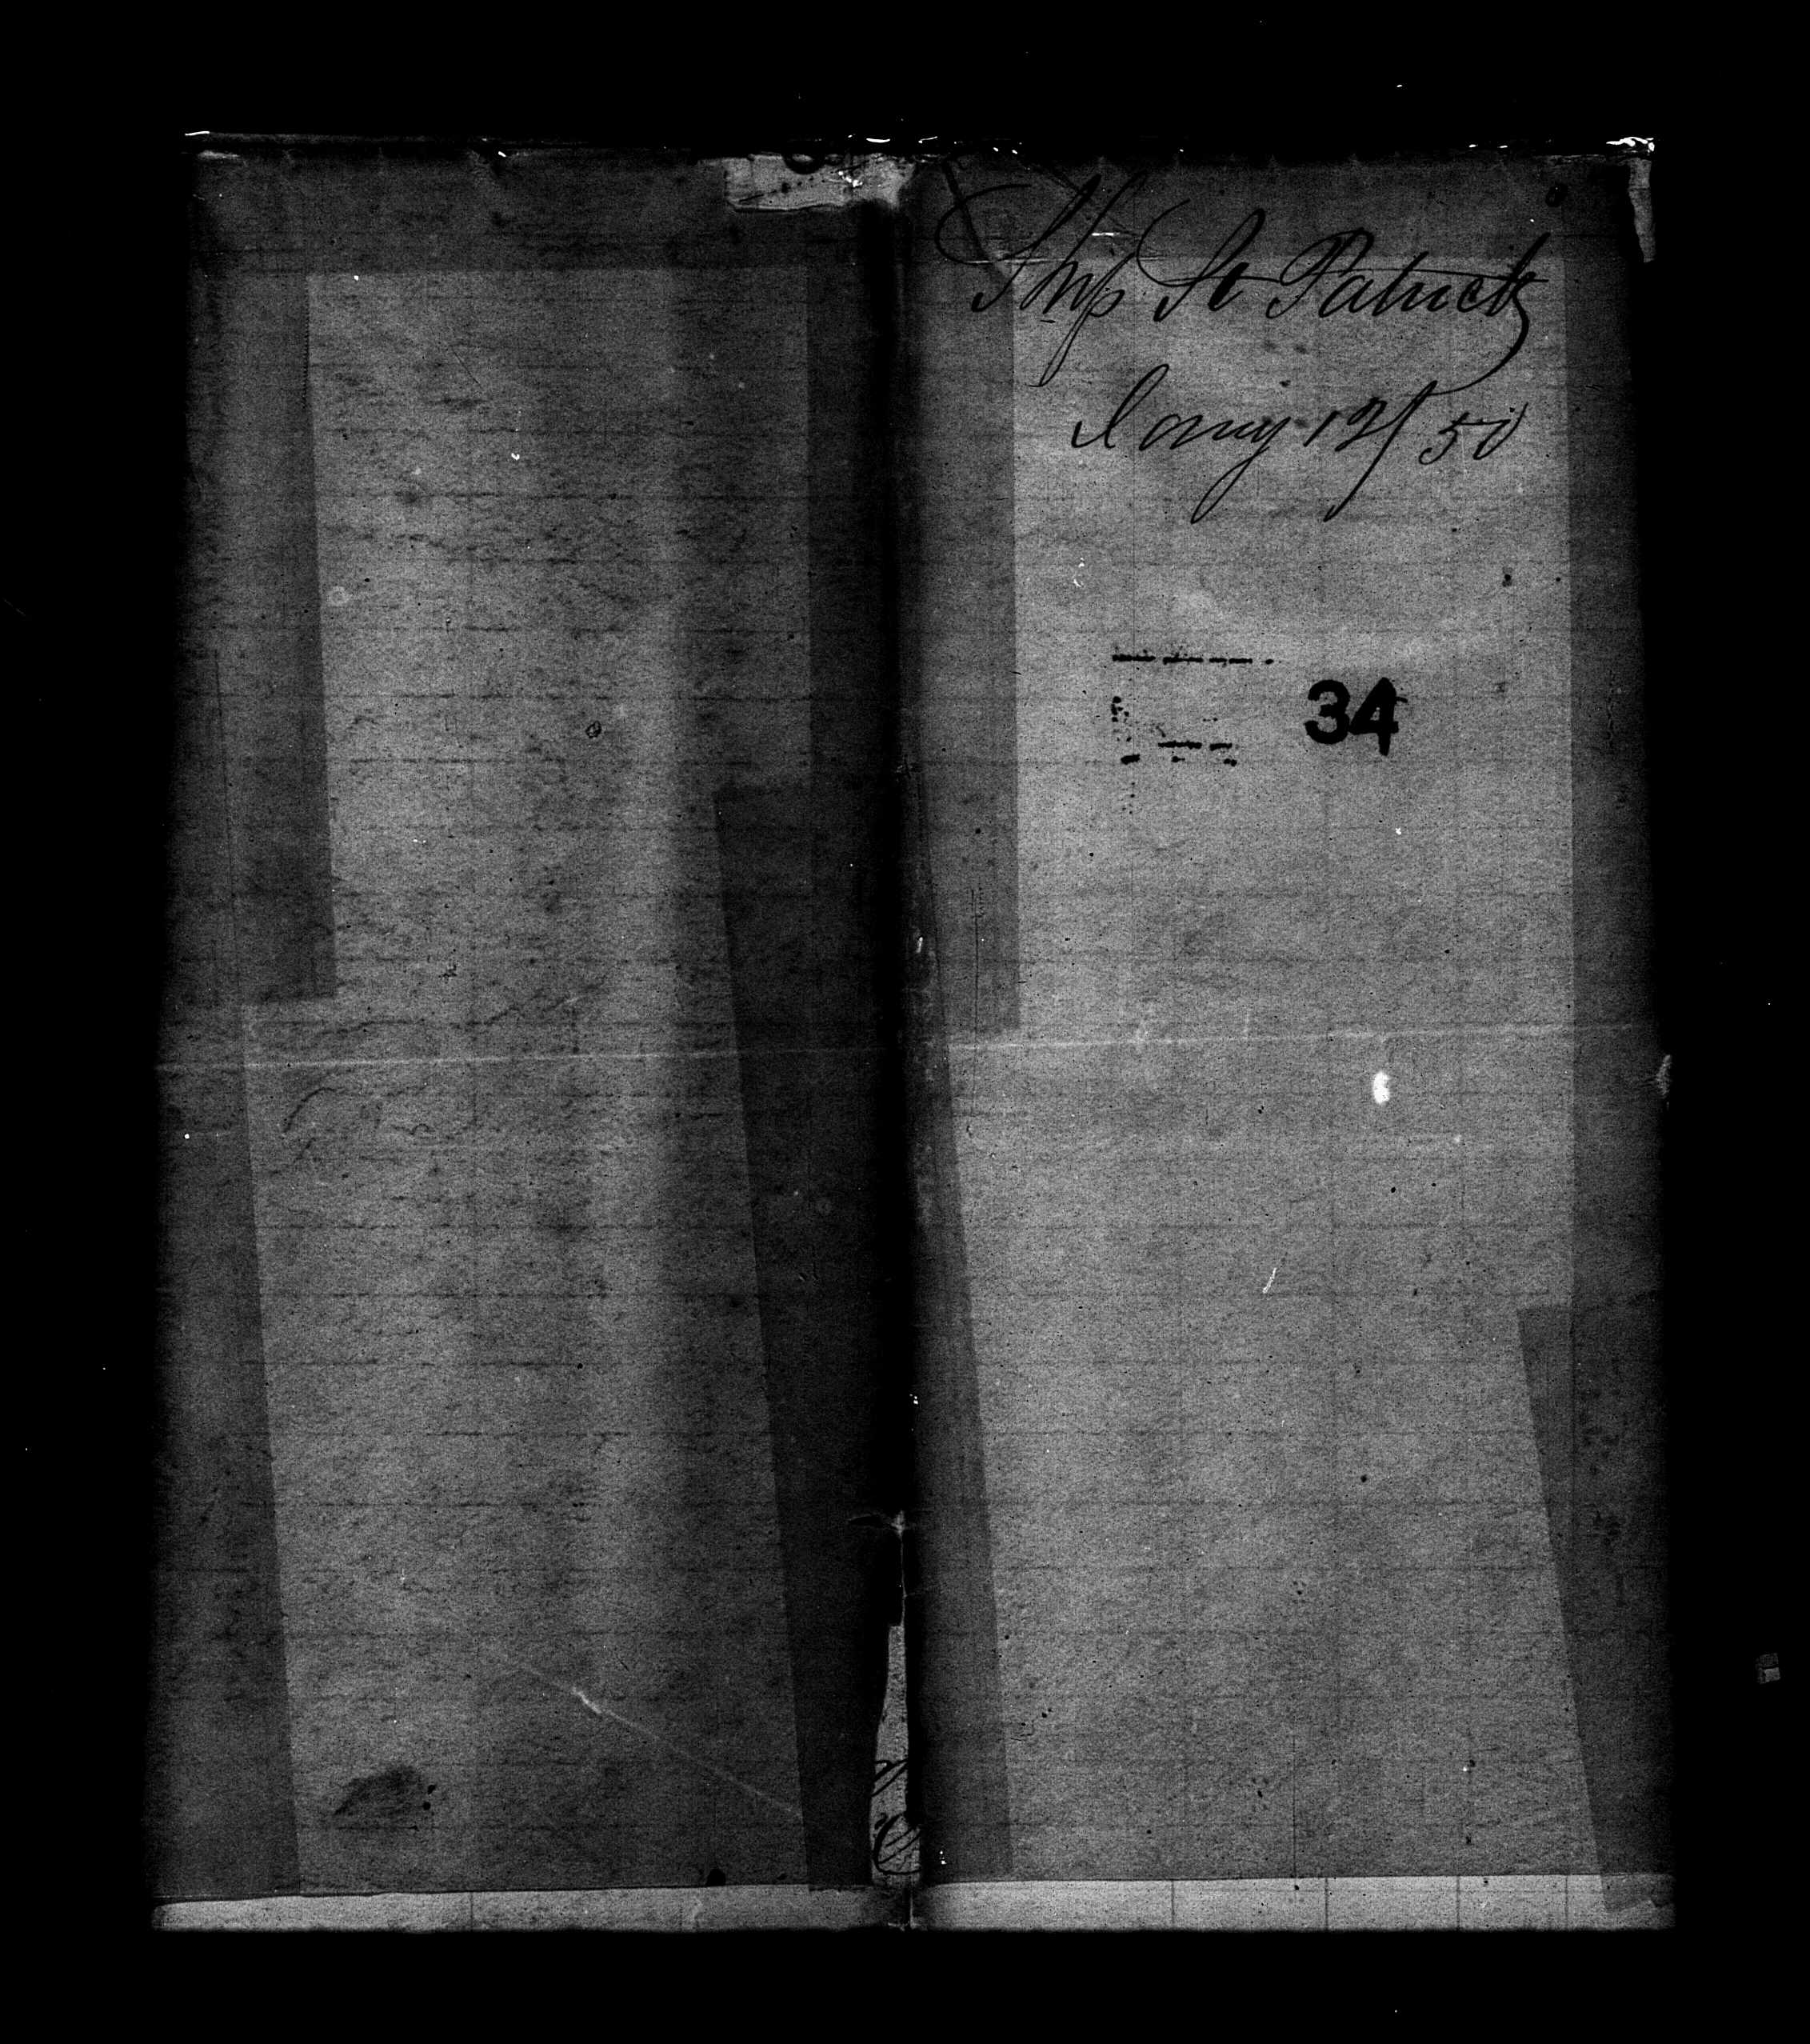 Ship St Patrick
Jany 12/50
34